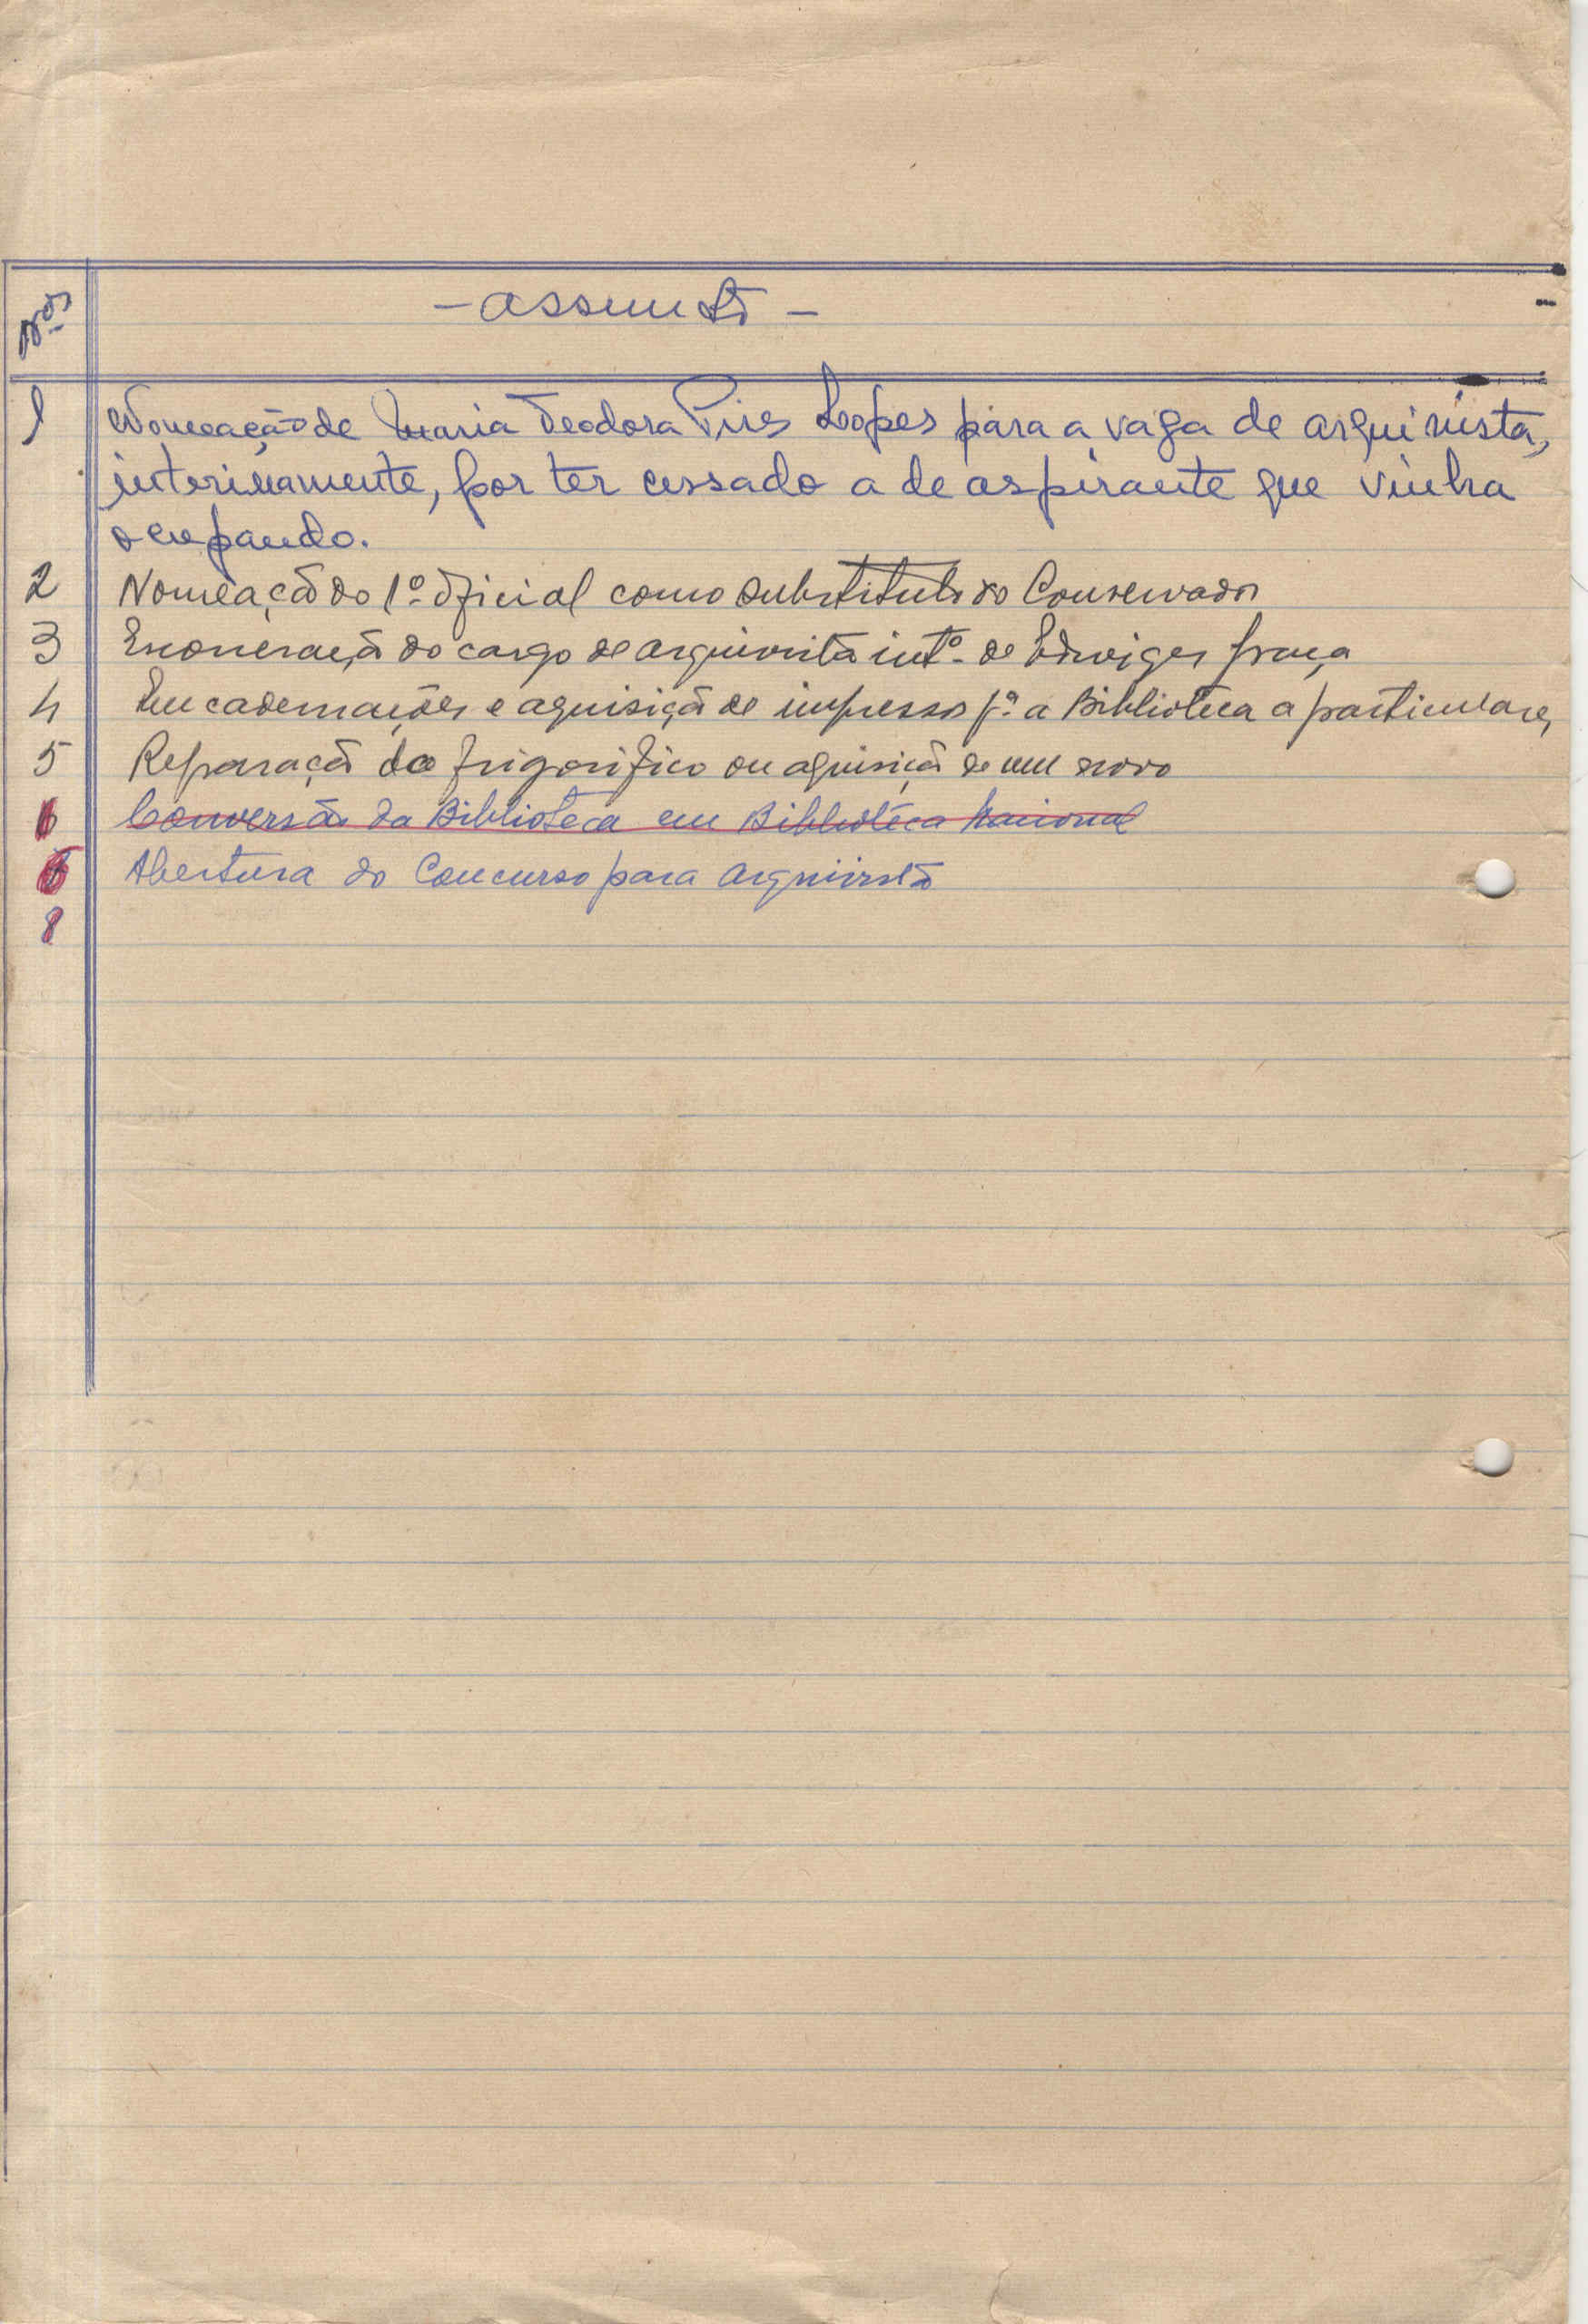 Nos
- Assunto -
1 Nomeação de Maria Teodora Pires Lopes para a vaga de arquivista,
interinamente, por ter cessado a de aspirante que vinha
ocupando.
2 Nomeação do 1º. Oficial como substituto do Conservador
3 Exoneração do cargo de arquivista intº. de Edwiges Graça
4 Encadernações e aquisição de impressos pª. a Biblioteca a particulares
5 Reparação do frigorífico ou aquisição de um novo
6 Conversão da Biblioteca em Biblioteca Nacional
6 Abertura do Concurso para Arquivista
8